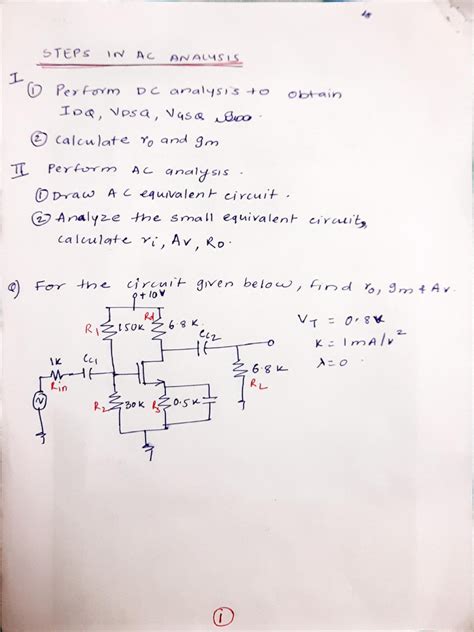 STEPS IN AC ANALYSIS
I
① Perform DC analysis to obtain
IDQ, VDSQ, VGSQ
② Calculate ro and gm
II Perform AC analysis.
① Draw AC equivalent circuit.
② Analyze the small equivalent circuit,
calculate ri, Av, Ro.
Q) For the circuit given below, find ro, gm & Av.
+10V
R1 150K Rd 6.8K
CC2
1K CC1
Rin
R2 30K Rs 0.5K
6.8K
RL
VT = 0.8V
K = 1mA/V²
λ=0
①